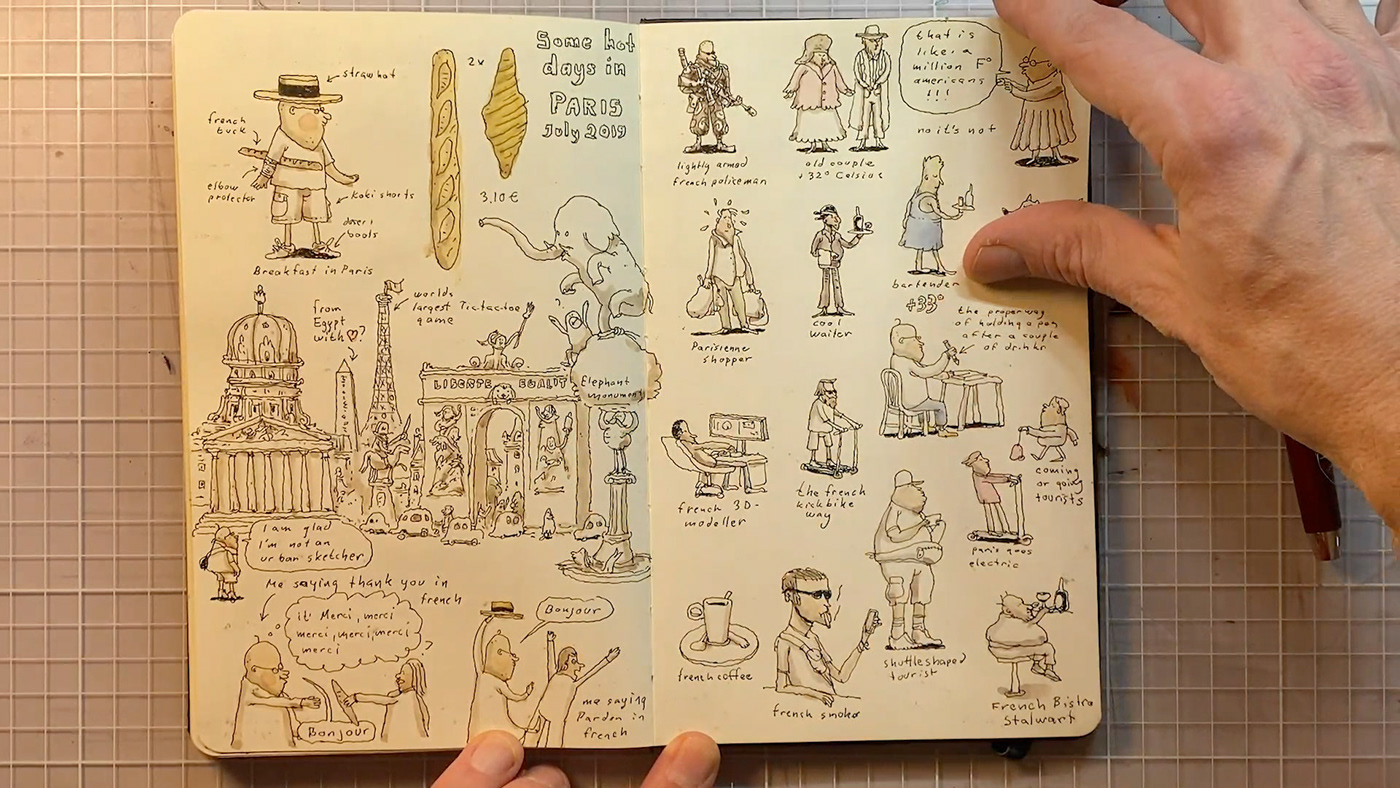 Some hot
days in
PARIS
July 2019
straw hat
french
tuck
elbow
protector
kaki shorts
boots
Breakfast in Paris
2x
3,10€
from
Egypt
with ♡?
worlds
largest Tic tac toe
game
LIBERTE EGALIT
Elephant
monument
I am glad
I'm not an
urban sketcher
Me saying thank you in
french
it Merci, merci
merci, merci, merci
merci
?
Bonjour
Bonjour
me saying
Pardon in
french
lightly armed
french policeman
old couple
+32° Celsius
that is
like a
million F°
americans
!!!
no it's not
Parisienne
shopper
cool
waiter
bartender
+33°
the proper way
of holding a pen
after a couple
of drinks
french 3D-
modeller
the french
kickbike
way
coming
or going
tourists
paris goes
electric
french coffee
french smoker
shuttleshaped
tourist
French Bistro
Stalwart